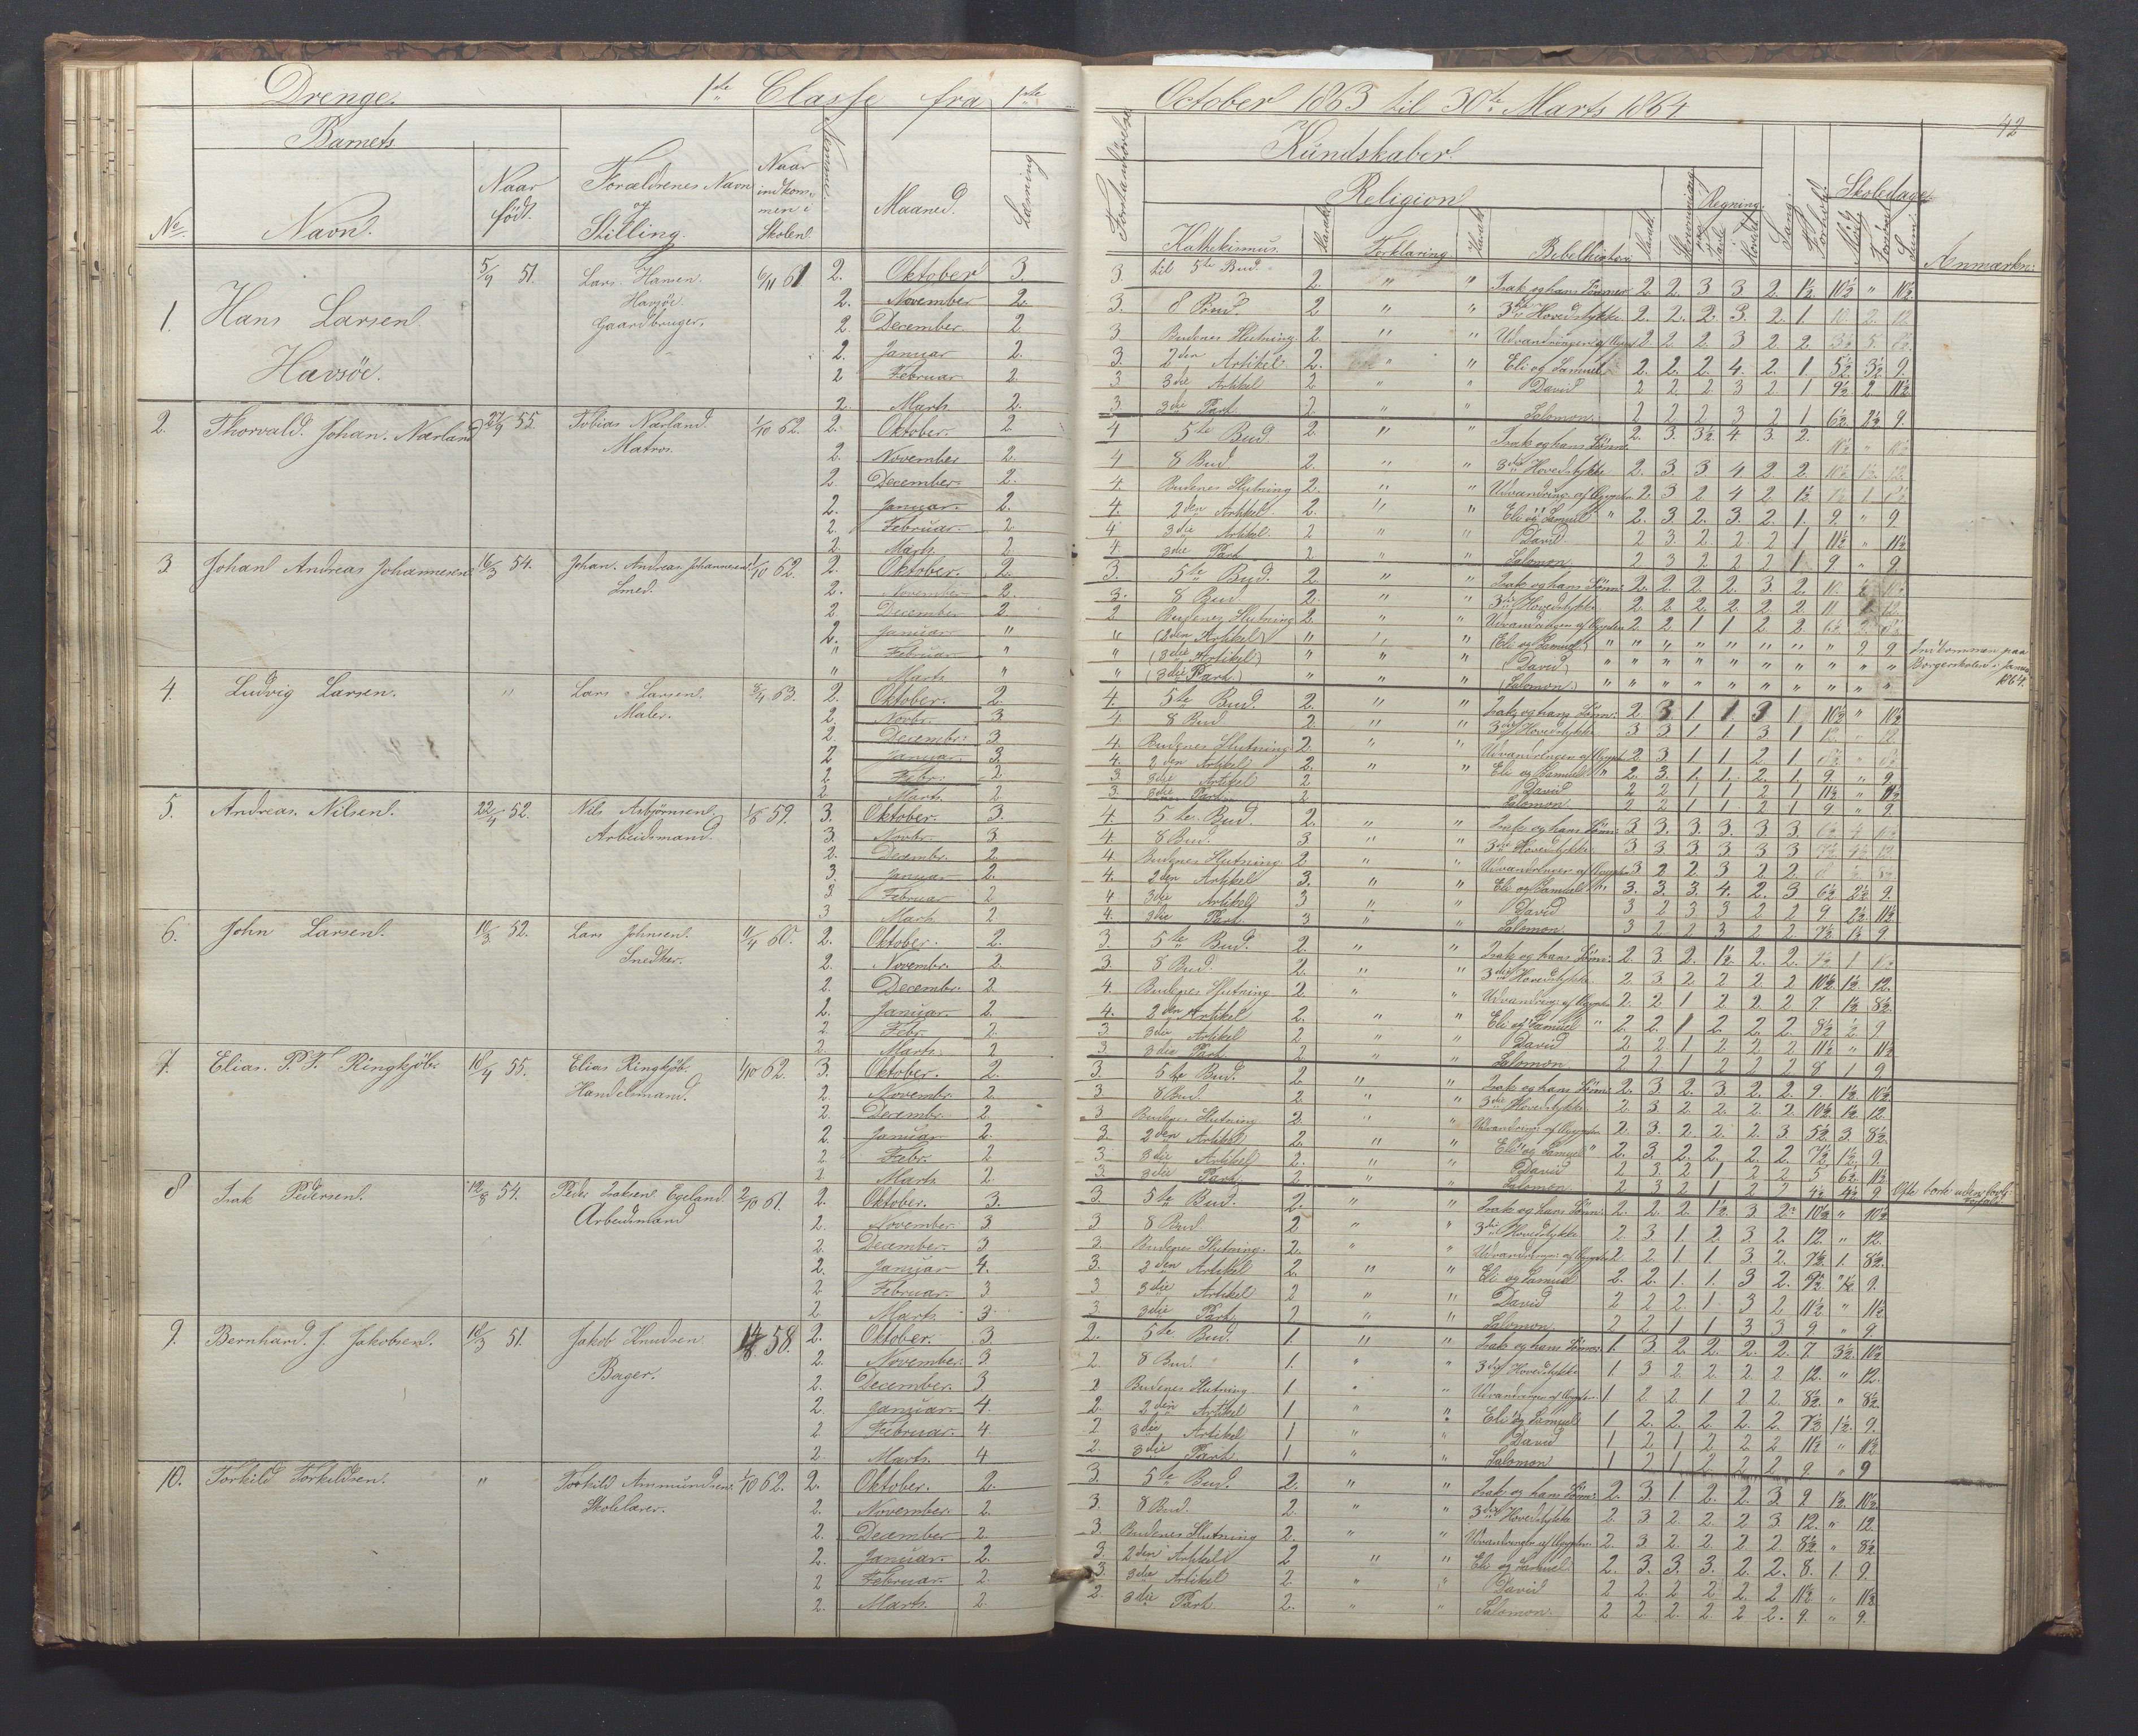 Drenge. 1ste Classe fra 1ste
Barnets
No. Navn. Naar født. Forældrenes Navn og Stilling. Naar indkommen i Skolen. Maaned. Læsning
1. Hans Larsen Havsöe. 5/9 51. Lars Hansen Havsöe. Gaardbruger. 6/11 61 2. Oktober 3
2. November 2.
2. December 2.
2. Januar 2.
2 Februar 2
2. Marts 2.
2. Thorvald Johan Nærland 55. Tobias Nærland Matros. 1/10 62. 2. Oktober. 2.
2. November 2.
2. December. 2.
2. Januar. 2.
2. Februar. 2
2. Marts 2
3. Johan Andreas Johannesen 16/3 54. Johan Andreas Johannesen Smed. 1/10 62. 2. Oktober. 2.
2. November 2.
2. December 2.
2. Januar "
" Februar "
" Marts "
4 Ludvig Larsen. " Lars Larsen Maler. 63. 2. Oktober. 2.
2. Novbr. 3
2. Decembr. 3.
2 Januar. 3.
2. Febr. 2.
2 Marts 2
5. Andreas Nilsen. 52. Nils Asbjörnsen Arbeidsmand 1/8 59. 3. Oktober. 3.
3. Novbr. 3
2. Decembr. 2.
3. Januar 2.
3 Februar 2
3 Marts 2.
6. John Larsen. 52. Lars Johnsen. Snedker. 11/4 60. 2. Oktober. 2.
2. Novembr. 2.
2. Decembr. 2.
2. Januar. 2.
2. Febr. 2.
2. Marts. 2
7. Elias. P. T. Ringkjöb. 55. Elias Ringkjöb. Handelsmand. 1/10 62. 3. Oktober. 2.
2. Novembr. 2.
2. Decembr. 2.
2. Januar 2.
2 Febr. 2
2. Marts 2.
8 Isak Pedersen. 12/8 54. Peder Isaksen Egeland Arbeidsmand 2/10 61. 2. Oktober. 3.
2. November 3
2. December. 3
2. Januar 4.
2 Februar. 3
2. Marts. 3.
9. Bernhard. J. Jakobsen. 51. Jakob Knudsen Bager. 58. 2. Oktober. 3.
2. November. 3
2. December. 3
2. Januar. 4.
2 Februar. 4.
2. Marts. 4
10. Torkild Torkildsen. " Torkild Ammundsen Skolelærer. 1/10 62. 2. Oktober. 2.
2. November. 2.
2. December 2.
2. Januar. 2.
2 Februar. 2
2. Marts. 2.
October 1863 til 30te Marts 1864
42
Kundskaber.
Religion Regning. Skoledage
Kathekismus. Karakt. Forklaring Karakt. Bibelhistorie Karakt. Sang. Sum. Anmærkn:
3 til 5te Bud. 2. " " Isak og hans Sönner 2. 2. 3 3 2. 1½ 10½ " 10½
3. 8 Bud. 2 " " 3die Hovedstykke 2. 2. 2. 3. 2. 1. 10. 2. 12
3 Budenes Slutning. 2. " " 2 2 2 3 2 2.
3. 2den Artikel. 2. " " Eli og Samuel. 2. 2. 2. 4. 2. 1. 5½ 3½ 9.
3 3die Artikel 2 " " David 2 2 2 3 2 1 9½ 2 11½
3. 3die Part. 2 " " Salomon. 2 2 2 3 2 1 6½ 2½ 9.
4 5te Bud. 2. " " Isak og hans Sönn: 2. 3. 3½ 4 3. 2. 10½ " 10½
4 8 Bud. 2. " " 3die Hovedstykke 2. 3 3 4 2. 2. 10½ 1½ 12
4. Budenes Slutning 2. " " Udvandring. af Egypten 2. 3 2 4 2 1½
4. 2den Artikel 2. " " Eli og Samuel " 2. 3. 2. 3. 2. 1. 9. " 9
4 3die Artikel 2 " " David. 2 3 2. 2 2 1 11½ " 11½
4. 3die Part 2 " " Salomon 2 3 2 2 2 1 9 " 9
3. 5te Bud. 2. " " Isak og hans Sönn: 2. 2. 2. 2. 3. 2.
3. 8 Bud. 2. " " 3die Hovedstykke 2. 2 2. 2. 2. 2.
2 Budenes Slutning 2 " " Udvandringen af Egypten 2 2 1 1 2 2.
" (2den Artikel) " " " (Eli og Samuel) " " " " " " " 9 9 Indkommen paa
" (3die Artikel) " " " (David) " " " " " " " " " Borgerskolen i Januar
" (3die Part.) " " " (Salomon) " " " " " " " " " 1864.
4. 5te Bud. 2. " " Isak og hans Sönn: 2. 3 1. 1. 3 1. 10½ " 10½
4. 8 Bud 2. " " 3die Hovedstykke 3 3 1 1 3 1 12 " 12
4. Budenes Slutning 2. " " Udvandringen af Egypt. 2. 3 1 1 2 1
4. 2den Artikel 2. " " Eli og Samuel " 2. 3. 1. 1. 2. 1. 9. " 9.
3. 3die Artikel 2 David 2 2 1 1 2 1 11½ " 11½
3. 3die Part 2 Salomon 2 2 1 1 2 1 9 " 9.
4. 5te Bud. 2. " " Isak og hans Sönn: 3. 3. 3. 3. 3. 3.
4. 8 Bud. 3 " " 3die Hovedstykke 3. 3 3 3 3 3
4. Budenes Slutning 2 " " Udvandringen af Egypt. 3 2 2 3 2 2.
4. 2den Artikel 3. " " Eli og Samuel " 3. 3. 3. 4. 2. 3 6½ 2½ 9.
4 3die Artikel 3 " " David 3 2 3 3 2 2 9 2½ 11½
4. 3die Part. 3 " " Salomon 3 2 2 3 2 2 7½ 1½ 9
3. 5te Bud. 2. " " Isak og hans Sönn: 2. 3 2. 1½ 2. 2.
3. 8 Bud. 2. " " 3die Hovedstykke 2 3 2 2 2 2 10½ 1½ 12.
4. Budenes Slutning 2. " " Udvandring: af Egypten 2. 2 1 2 2 2 7. 1½ 8½
4. 2den Artikel 2. " " Eli og Samuel " 2. 2. 1 2. 2. 2. 8½ ½ 9
3. 3die Artikel 2 " " David 2 2 1 2 2 2 11½ " 11½
3. 3die Part 2 " " Salomon 2 2 1 2 2 2 8 1 9
3. 5te Bud. 2 " " Isak og hans Sönn: 2. 3 2. 3. 2. 2. 9. 1½ 10½
3. 8 Bud. 2 " " 3die Hovedstykke 2. 3. 2 2. 2. 2. 10½ 1½ 12.
3 Budenes Slutning 2. " " Udvandring: af Egypten 2. 3. 2. 2. 2. 3. 5½ 3. 8½
3. 2den Artikel 2. " " Eli og Samuel " 2. 3. 2. 2. 2. 2. 7½ 1½ 9.
3 3die Artikel 2. " " David 2 3 2 1 2 2 5 6½ 11½
3. 3die Part. 2. " " Salomon 2 3 2 1 2 2 4½ 4½ 9. Ofte borte uden lovl: Forfald
3. 5te Bud. 2. " " Isak og hans Sönn: 2. 2. 2. 1½ 3 2. 10½ " 10½
3 8 Bud. 2 " " 3die Hovedstykke 2. 3 1. 2. 3 2. 12. " 12.
3. Budenes Slutning. 2. " " Udvandringen: af Egypten 2 2 1 1. 3 2. 7½ 1. 8½
3. 2den Artikel 2. " " Eli og Samuel 2. 2. 1. 1. 3 2. 9.
3 3die Artikel 2 " " David 2 2 2. 1. 3 2 11½ " 11½
3 3die Part. 2 " " Salomon 2 2 1 1 3 3 9 " 9.
2. 5te Bud. 1. " " Isak og hans Sönner: 1. 3 2. 2. 2. 2. 7. 3½ 10½
2. 8 Bud. 1. " " 3die Hovedstykke 1. 3 2 2. 2. 2 12. " 12.
2 Budenes Slutning. 1 " " Udvandringen af Egypten 1 2 2 1 2 2 8½ " 8½
2. 2den Artikel 1 " " Eli og Samuel 1 2. 2. 2. 2. 2. 7½ 1½ 9.
2 3die Artikel 1 " " David 1 2 1 2 2 2 11½ " 11½
2. 3die Part 1 " " Salomon 1 2 1 2 2 2 9. " 9
3. 5te Bud. 2. " " Isak og hans Sönn: 2. 3. 1. 2. 2. 3. 9 1½ 10½
3. 8 Bud. 2. " " 3die Hovedstykke 2 3 2 2 2 3 12. " 12.
3. Budenes Slutning 2. " " Udvandringen af Egypten. 2. 3. 2. 2. 2. 2. 8½ " 8½
3. 2den Artikel 2 " " Eli og Samuel 2. 3. 3. 3. 2 2. 8. 1. 9.
3. 3die Artikel 2. " " David 2 2 2 2 2. 2 11½ " 11½
2 3die Part 2. " " Salomon. 2 2. 2. 2. 2 2. 9. " 9.